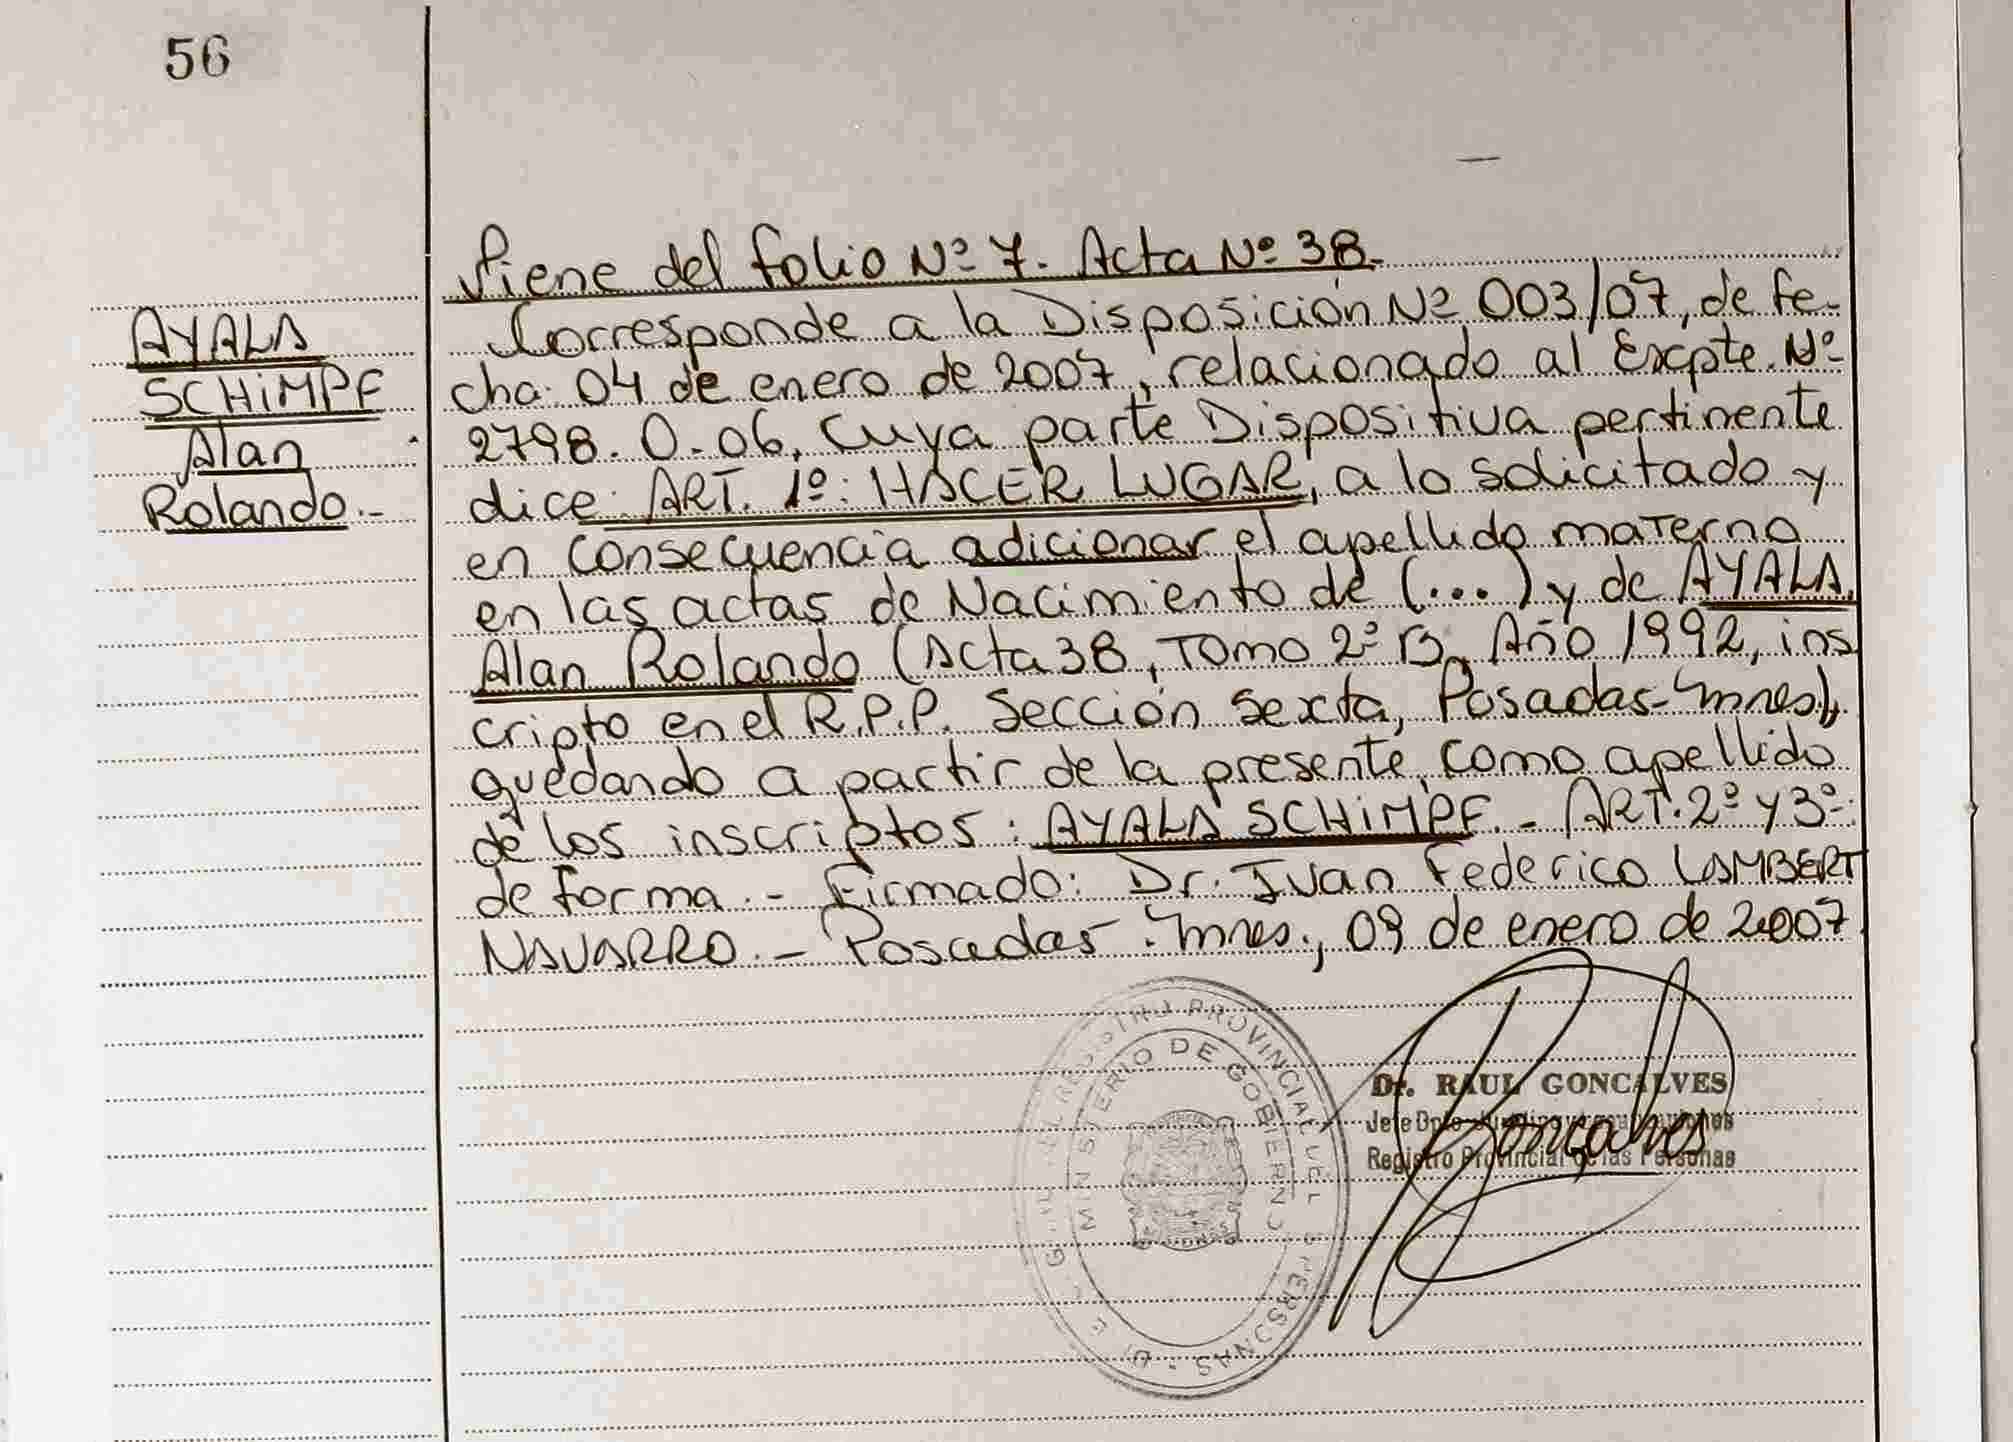 56
AYALA
SCHIMPF
Alan
Rolando.-
Viene del folio Nº 7. Acta Nº 38.
Corresponde a la Disposición Nº 003/07, de fe-
cha: 04 de enero de 2007, relacionado al Excpte. Nº
2798. O-06, cuya parte Dispositiva pertinente
dice: ART. 1º: HACER LUGAR, a lo solicitado y
en consecuencia adicionar el apellido materno
en las actas de Nacimiento de (...) y de AYALA,
Alan Rolando (Acta 38, Tomo 2º B, Año 1992, ins
cripto en el R.P.P. Sección Sexta, Posadas-Mnes),
quedando a partir de la presente, como apellido
de los inscriptos: AYALA SCHIMPF. - ART. 2º y 3º:
de forma. - Firmado: Dr. Juan Federico LAMBERT
NAVARRO. - Posadas - Mnes., 09 de enero de 2007.
REGISTRO PROVINCIAL DE L S PERSONAS
MINISTERIO DE GOBIERNO
MISIONES
Dr. RAUL GONCALVES
Jefe Dpto
Registro Provincial de las Personas
Goncalves